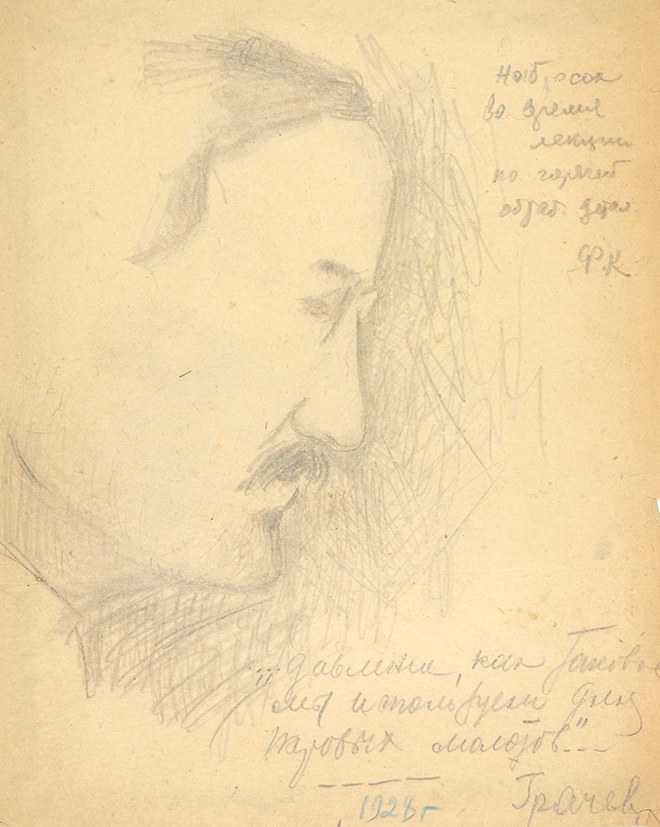 Набросок
во время
лекции
по горячей
обраб. детал.
Ф.К
"...давление, как таковое
мы используем для
паровых молотов"...
1928 г
Грачев